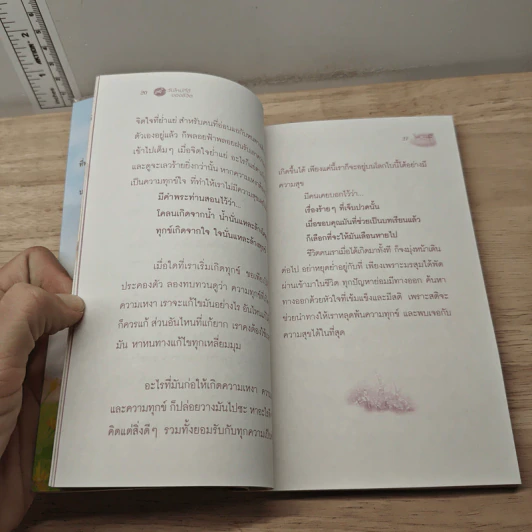 จิตใจที่ย่ำแย่ สำหรับคนที่อ่อนแอกับ
ตัวเองอยู่แล้ว ก็พลอยฟ้าพลอยฝน
เข้าไปเต็มๆ เมื่อจิตใจย่ำแย่ อะไรก็
และดูจะเลวร้ายยิ่งกว่านั้น หาก
เป็นความทุกข์ใจ ที่ทำให้เราไม่มีความสุข
มีคำพระท่านสอนไว้ว่า...
โคลนเกิดจากน้ำ น้ำนั่นแหละล้าง
ทุกข์เกิดจากใจ ใจนั่นแหละ
เมื่อใดที่เราเริ่มเกิดทุกข์
ประคองตัว ลองทบทวนดูว่า ความทุกข์
ความเหงา เราจะแก้ไขมันอย่างไร อันไหน
ก็ควรแก้ ส่วนอันไหนที่แก้ยาก เราคงต้อง
มัน หาหนทางแก้ไขทุกเหลี่ยมมุม
อะไรที่มันก่อให้เกิดความเหงา
และความทุกข์ ก็ปล่อยวางมันไปซะ
คิดแต่สิ่งดีๆ รวมทั้งยอมรับกับทุก
เกิดขึ้นได้ เพียงแค่นี้เราก็จะอยู่บนโลกใบนี้ได้อย่างมี
ความสุข
มีคนเคยบอกไว้ว่า...
เรื่องร้ายๆ ที่เจ็บปวดนั้น
เมื่อขอบคุณมันที่ช่วยเป็นบทเรียนแล้ว
ก็เลือกที่จะให้มันเลือนหายไป
ชีวิตคนเราเมื่อได้เกิดมาทั้งที ก็จงมุ่งหน้าเดิน
ต่อไป อย่าหยุดย่ำอยู่กับที่ เพียงเพราะมรสุมได้พัด
ผ่านเข้ามาในชีวิต ทุกปัญหาย่อมมีทางออก ค้นหา
ทางออกด้วยหัวใจที่เข้มแข็งและมีสติ เพราะสติจะ
ช่วยนำทางให้เราหลุดพ้นความทุกข์ และพบเจอกับ
ความสุขได้ในที่สุด